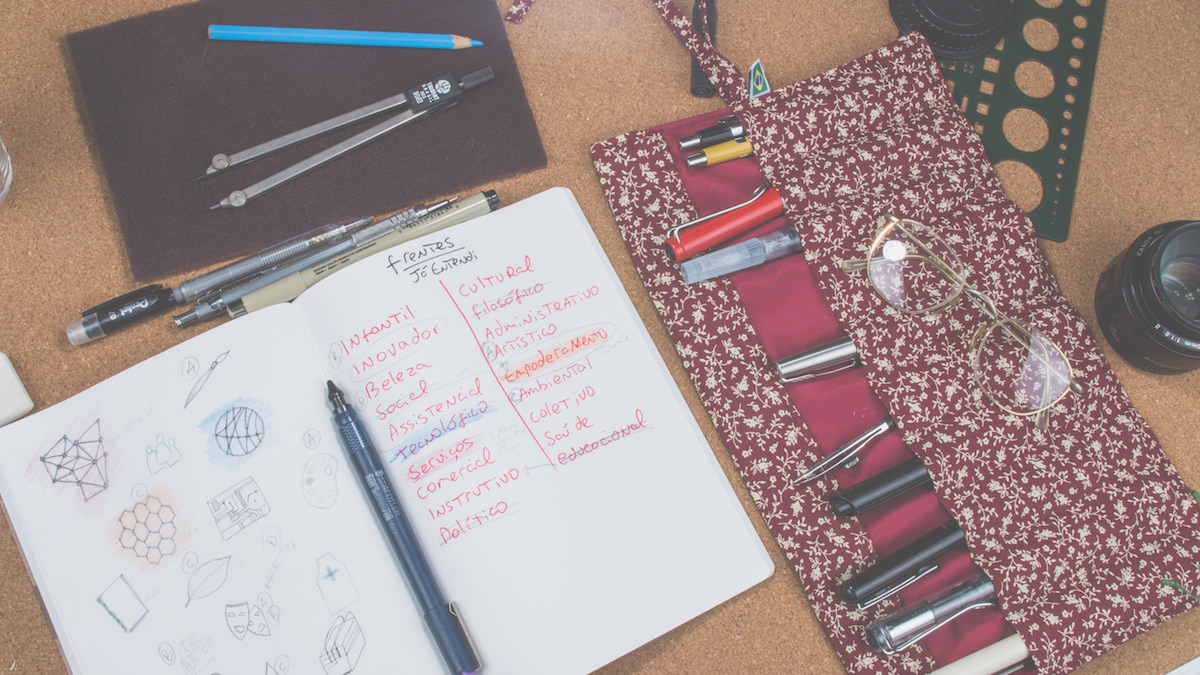 frentes
Já Entendi
Infantil
Inovador
Beleza
Social
Assistencial
Tecnológico
Serviços
comercial
Instrutivo
Político
Cultural
Filosófico
Administrativo
Artístico
Empoderamento
Ambiental
Coletivo
Saúde
educacional
A
A
C
C
D
C
CANON